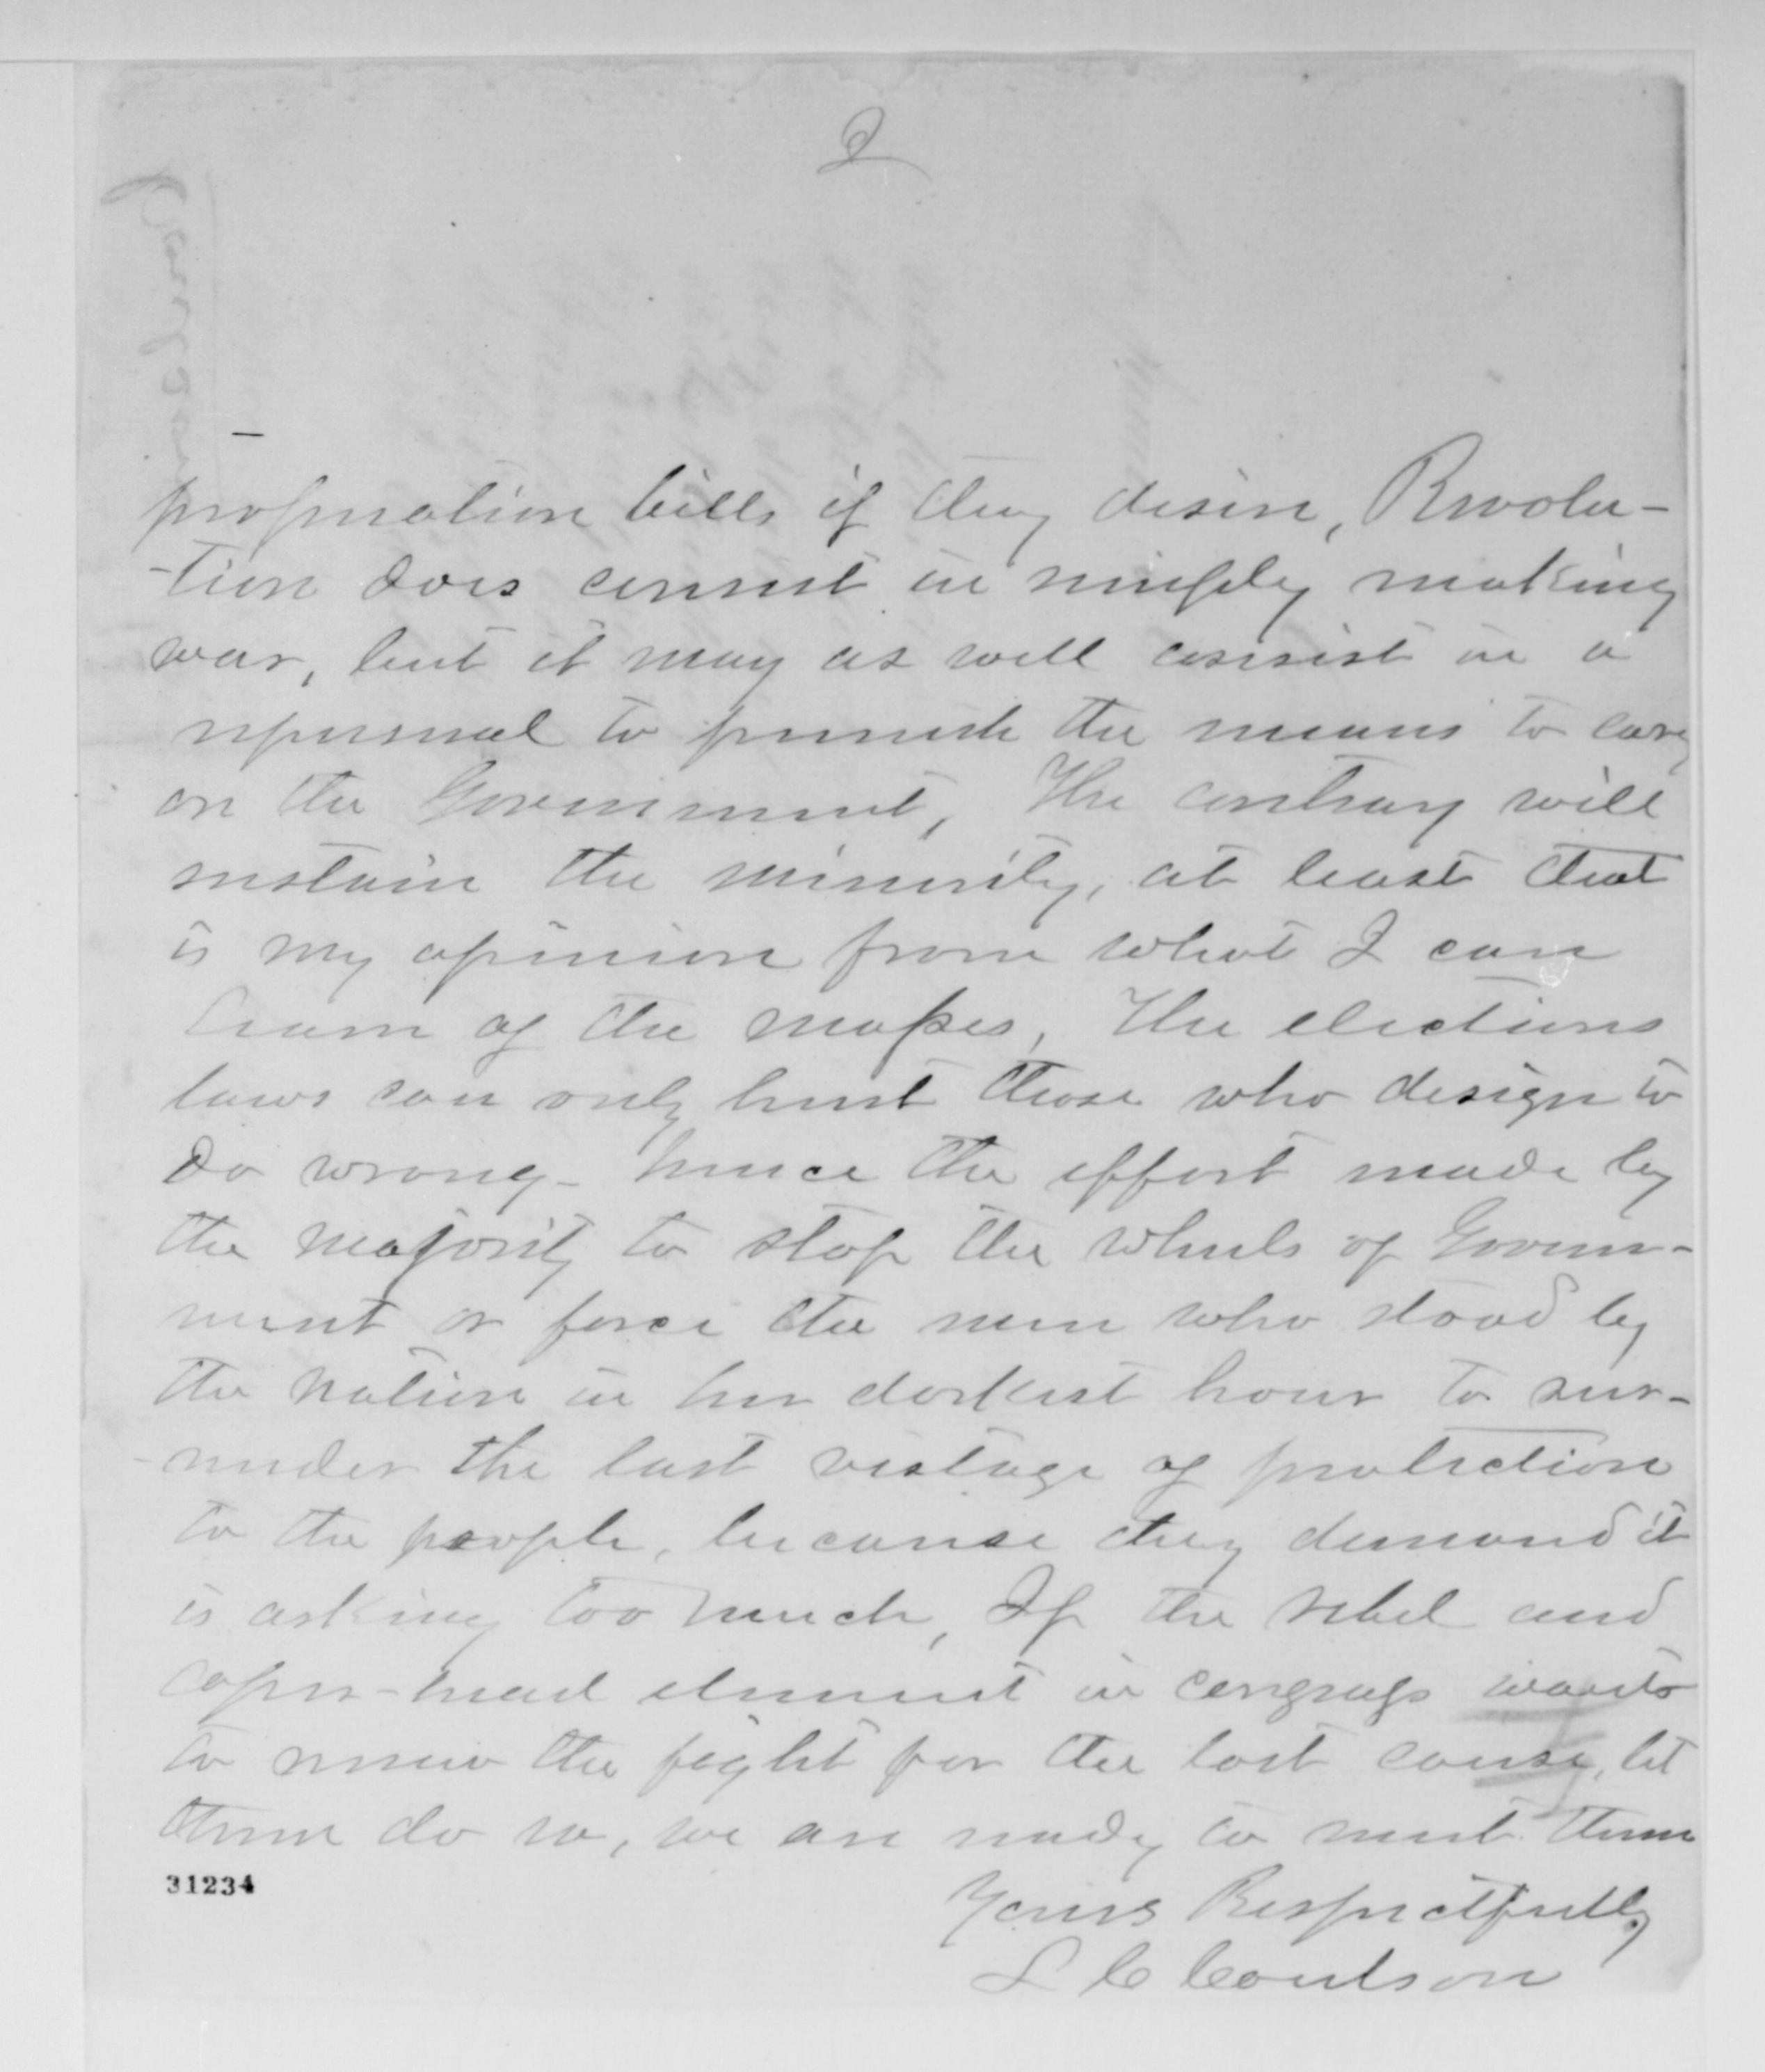 2
propriation bills if they desire, Revolu-
-tion does consist in simply making
war, but it may as well consist in a
refusal to furnish the means to cary
on the Government, The contrary will
sustain the minority, at least that
is my opinion from what I can
learn of the masses, The elections
laws can only hurt those who design to
do wrong - hence the effort made by
the majority to stop the wheels of Govern-
ment or force the men who stood by
the nation in her darkest hour to sur-
-render the last vestage of protection
to the people, because they demand it
is asking too much, If the rebel and
coper-head element in congress wants
to renew the fight for the lost cause, let
them do so, we are ready to meet them
31234
Yours Respectfully
L C Coulson